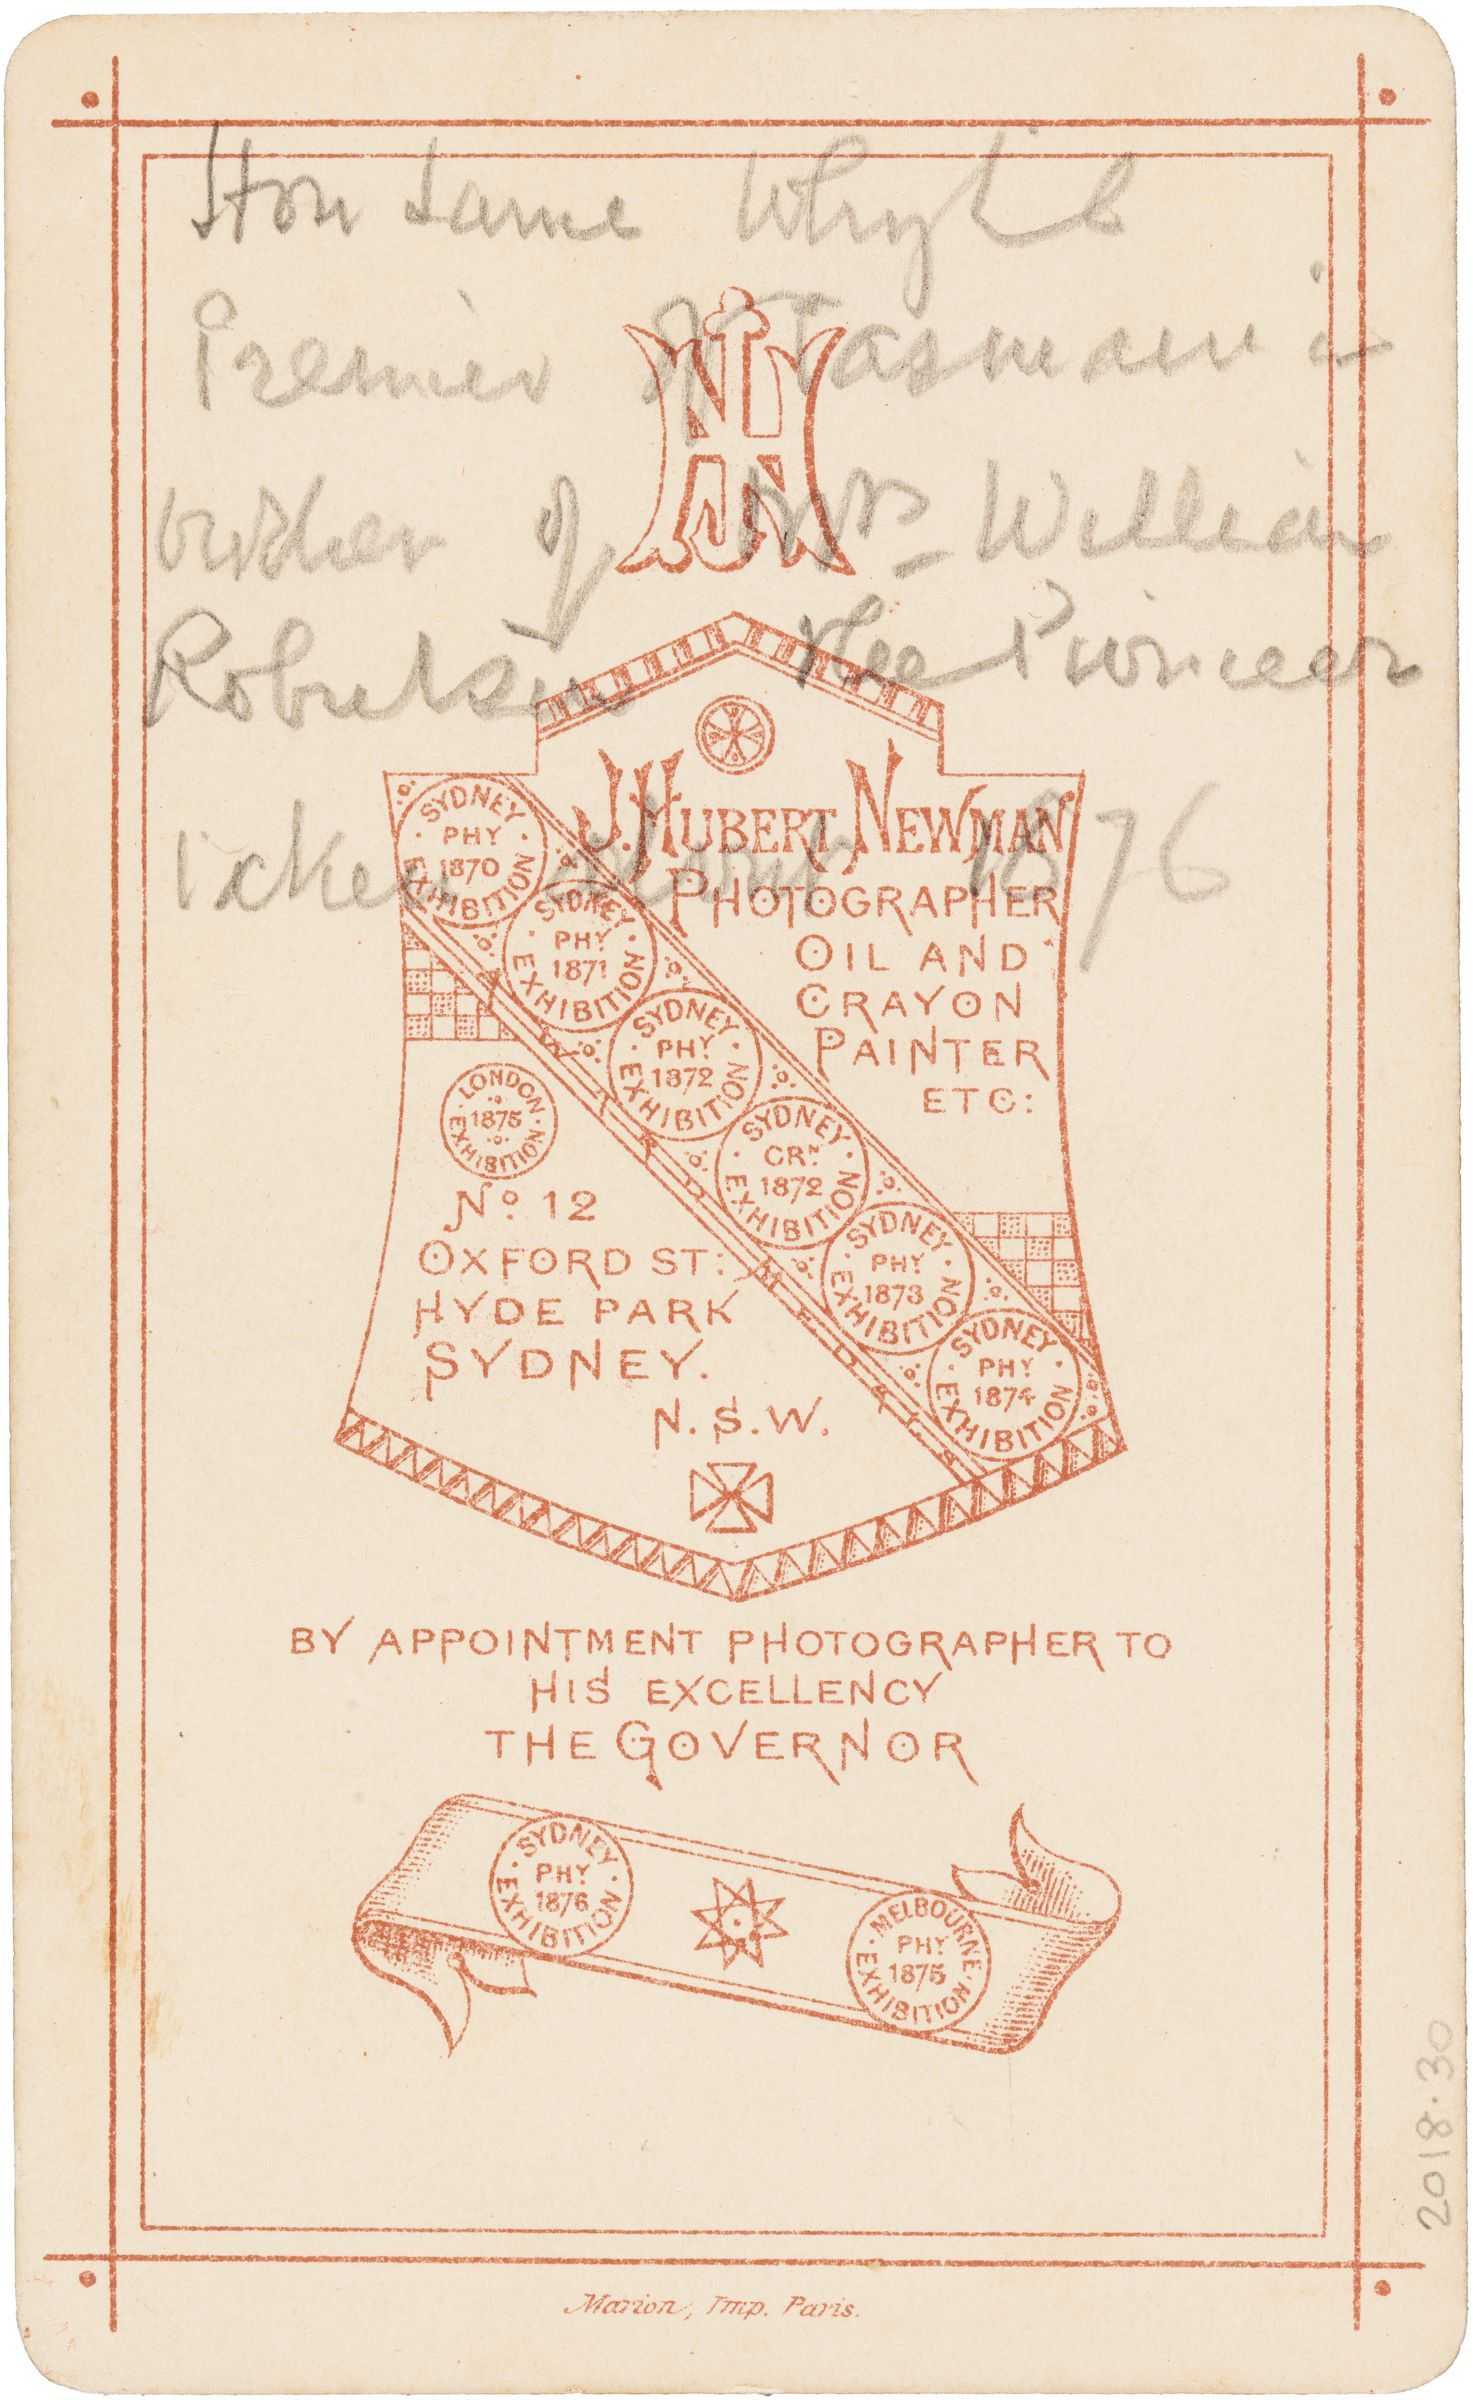 Hon Jame Whyte
Premier of Tasmania
brother of Mrs William
Robertson the Pioneer
taken about 1876
JHN
J. HUBERT NEWMAN
PHOTOGRAPHER
OIL AND
CRAYON
PAINTER
ETC:
SYDNEY PHY 1870 EXHIBITION
SYDNEY PHY 1871 EXHIBITION
SYDNEY PHY 1872 EXHIBITION
SYDNEY CRN 1872 EXHIBITION
SYDNEY PHY 1873 EXHIBITION
SYDNEY PHY 1874 EXHIBITION
PRIZE MEDALS
LONDON 1875 EXHIBITION
No. 12
OXFORD ST:
HYDE PARK
SYDNEY.
N.S.W.
BY APPOINTMENT PHOTOGRAPHER TO
HIS EXCELLENCY
THE GOVERNOR
SYDNEY PHY 1876 EXHIBITION
MELBOURNE PHY 1875 EXHIBITION
2018.30
Marion, Imp. Paris.